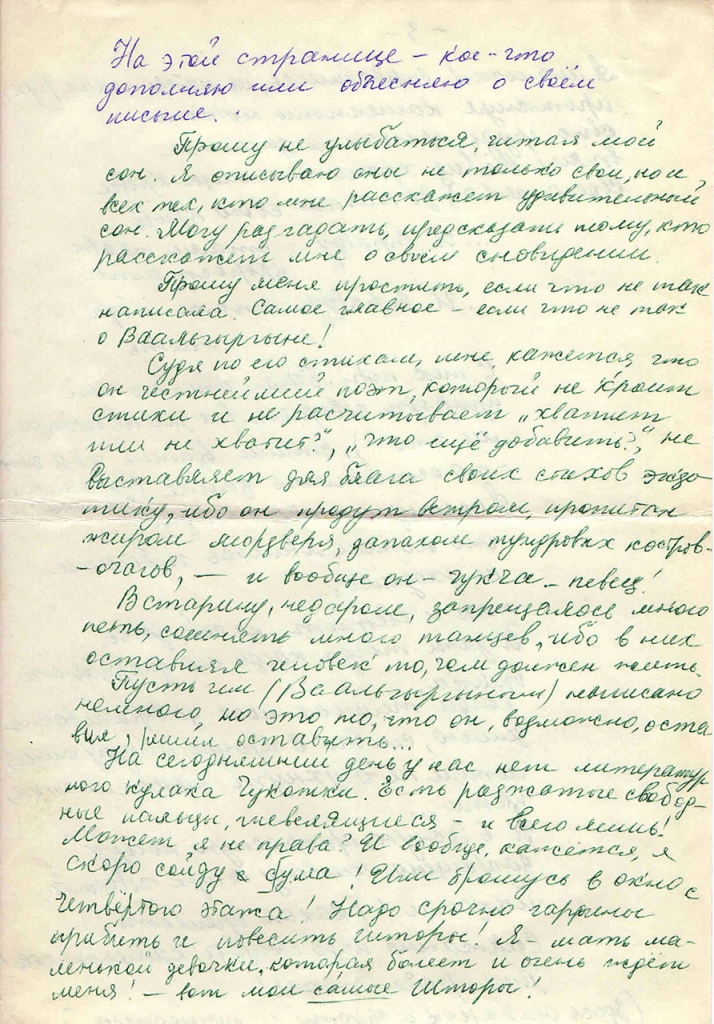 На этой странице – кое-что
дополняю или объесняю о своём
письме...
Прошу не улыбаться, читая мой
сон. Я описываю сны не только свои, но и
всех тех, кто мне расскажет удивительный
сон. Могу разгадать, предсказать тому, кто
расскажет мне о своём сновидении.
Прошу меня простить, если что не так
написала. Самое главное – если что не так
о Ваальгыргыне!
Судя по его стихам, мне, кажется, что
он честнейший поэт, который не кроит
стихи и не расчитывает „хватит
или не хватит?", „что ещё добавить?", не
выставляет для блага своих стихов экзо-
тику, ибо он продут ветром, пропитан
жиром морзверя, запахом тундровых костров-
-очагов, – и вообще он – чукча – певец!
В старину, недаром, запрещалось много
петь, сочинять много танцев, ибо в них
оставлял человек то, чем должен жить.
Пусть им (Ваальгыргыным) написано
немного, но это то, что он, возможно, оста
вил, решил оставить...
На сегодняшний день у нас нет литератур
ного кулака Чукотки. Есть разжатые свобод-
ные пальцы, шевелящиеся – и всего лишь!
Может я не права? И вообще, кажется, я
скоро сойду с ума! Или брошусь в окно с
четвёртого этажа! Надо срочно гардины
прибить и повесить шторы! Я – мать ма-
ленькой девочки, которая болеет и очень ждёт
меня! – вот мои самые Шторы!